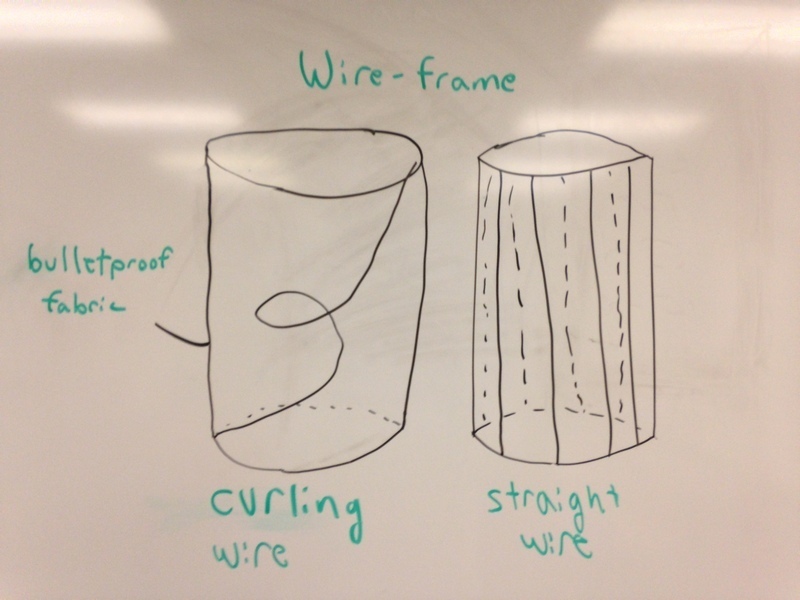 Wire-frame
bulletproof
fabric
curling
wire
straight
wire